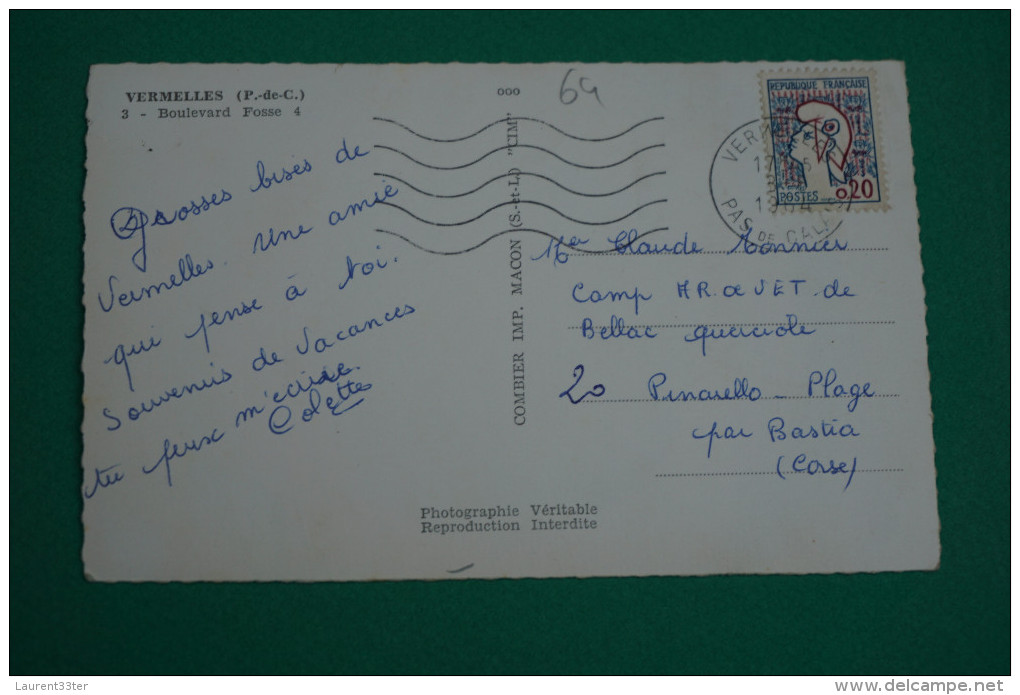 VERMELLES (P.-de-C.)
3 - Boulevard Fosse 4
ooo
69
REPUBLIQUE FRANÇAISE
POSTES 0,20
VERMELLES
PAS DE CALAIS
Grosses bises de
Vermelles. Une amie
qui pense à toi.
Souvenirs de Vacances
tu peux m'écrire
Colette
COMBIER IMP. MACON (S.-et-L.) "CIM"
Claude Monnier
Camp AR. et JET. de
Bellac
20 Pinarello - Plage
par Bastia
(Corse)
Photographie Véritable
Reproduction Interdite
Laurent33ter
delcampe.net